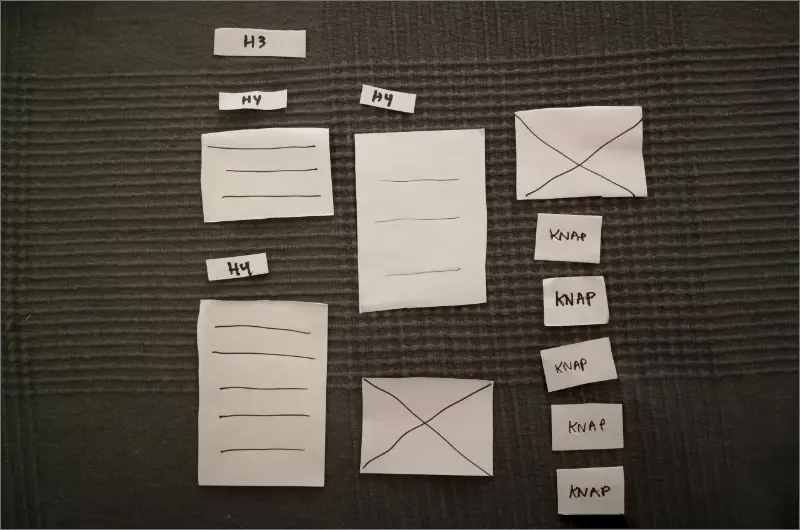 H3
H4
H4
KNAP
H4
KNAP
KNAP
KNAP
KNAP